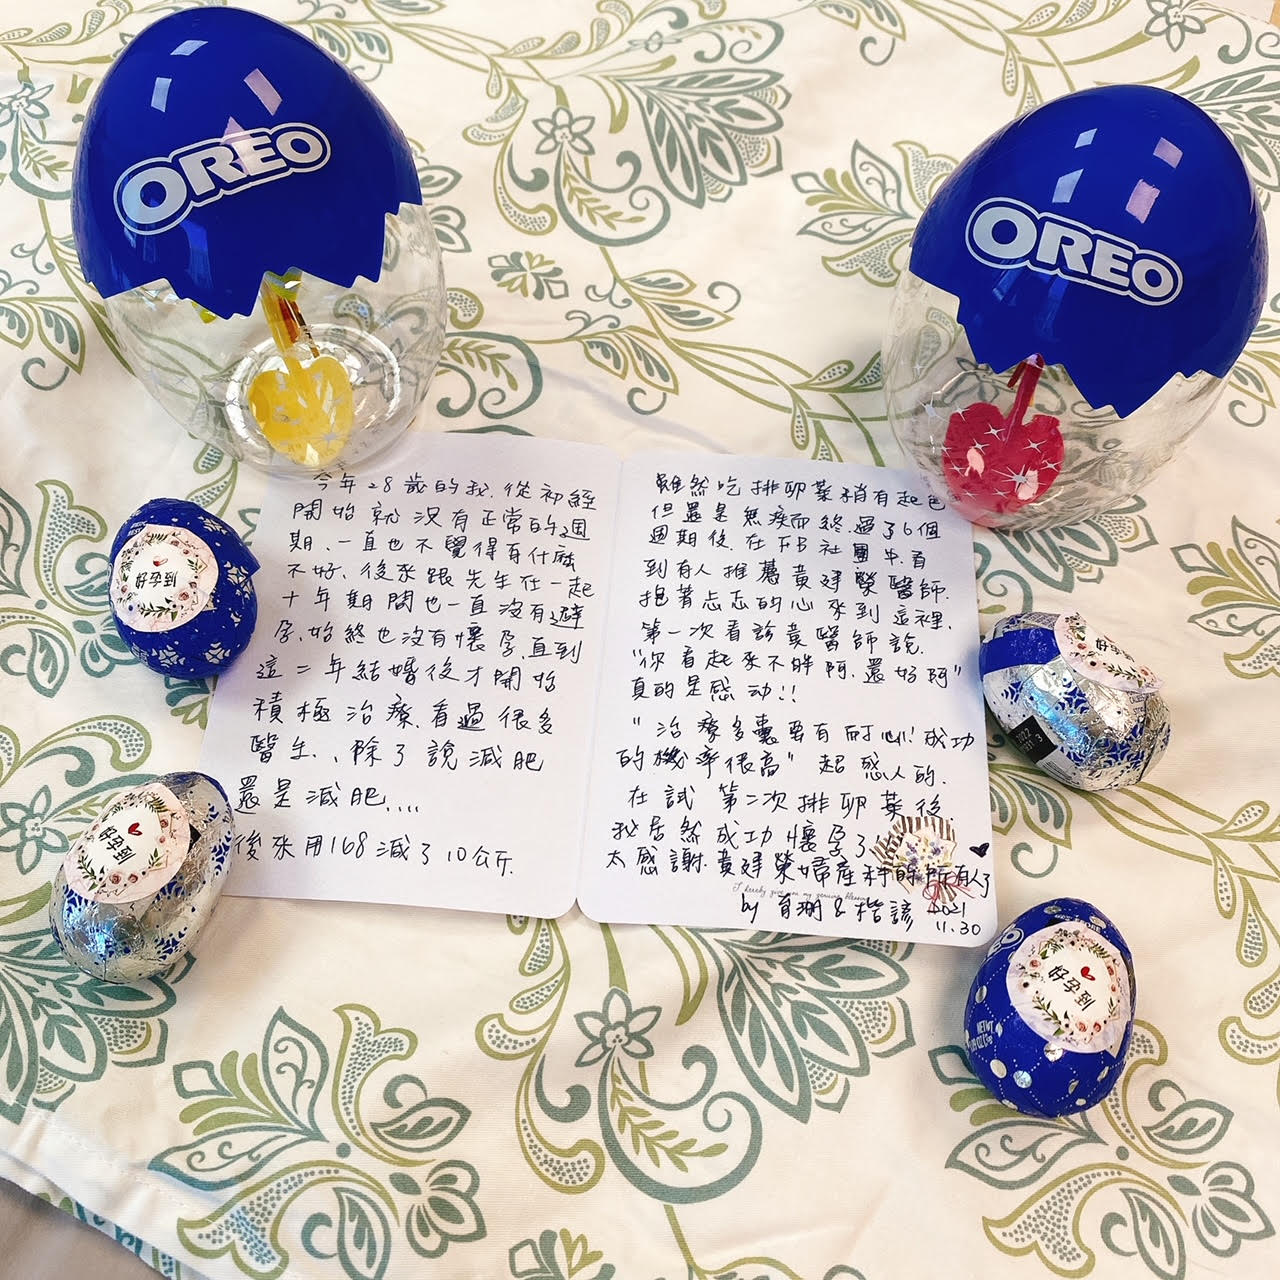 OREO
OREO
今年28歲的我.從初經
開始就沒有正常的週
期.一直也不覺得有什麼
不好.後來跟先生在一起
十年期間也一直沒有避
孕.始終也沒有懷孕.直到
這二年結婚後才開始
積極治療.看過很多
醫生..除了說減肥
還是減肥....
後來用168減了10公斤.
雖然吃排卵藥稍有起色
但還是無疾而終.過了6個
週期後.在FB社團中.看
到有人推薦黃建榮醫師.
抱著忐忑的心來到這裡.
第一次看診黃醫師說.
"你看起來不胖阿.還好阿"
真的是感动!!
"治療多囊要有耐心!成功
的機率很高"超感人的.
在試第二次排卵藥後.
我居然成功懷孕了
太感謝.黃建榮婦產科的所有人了
by &楷諺 2021
11.30
好孕到
好孕到
好孕到
好孕到
OREO
NET WT